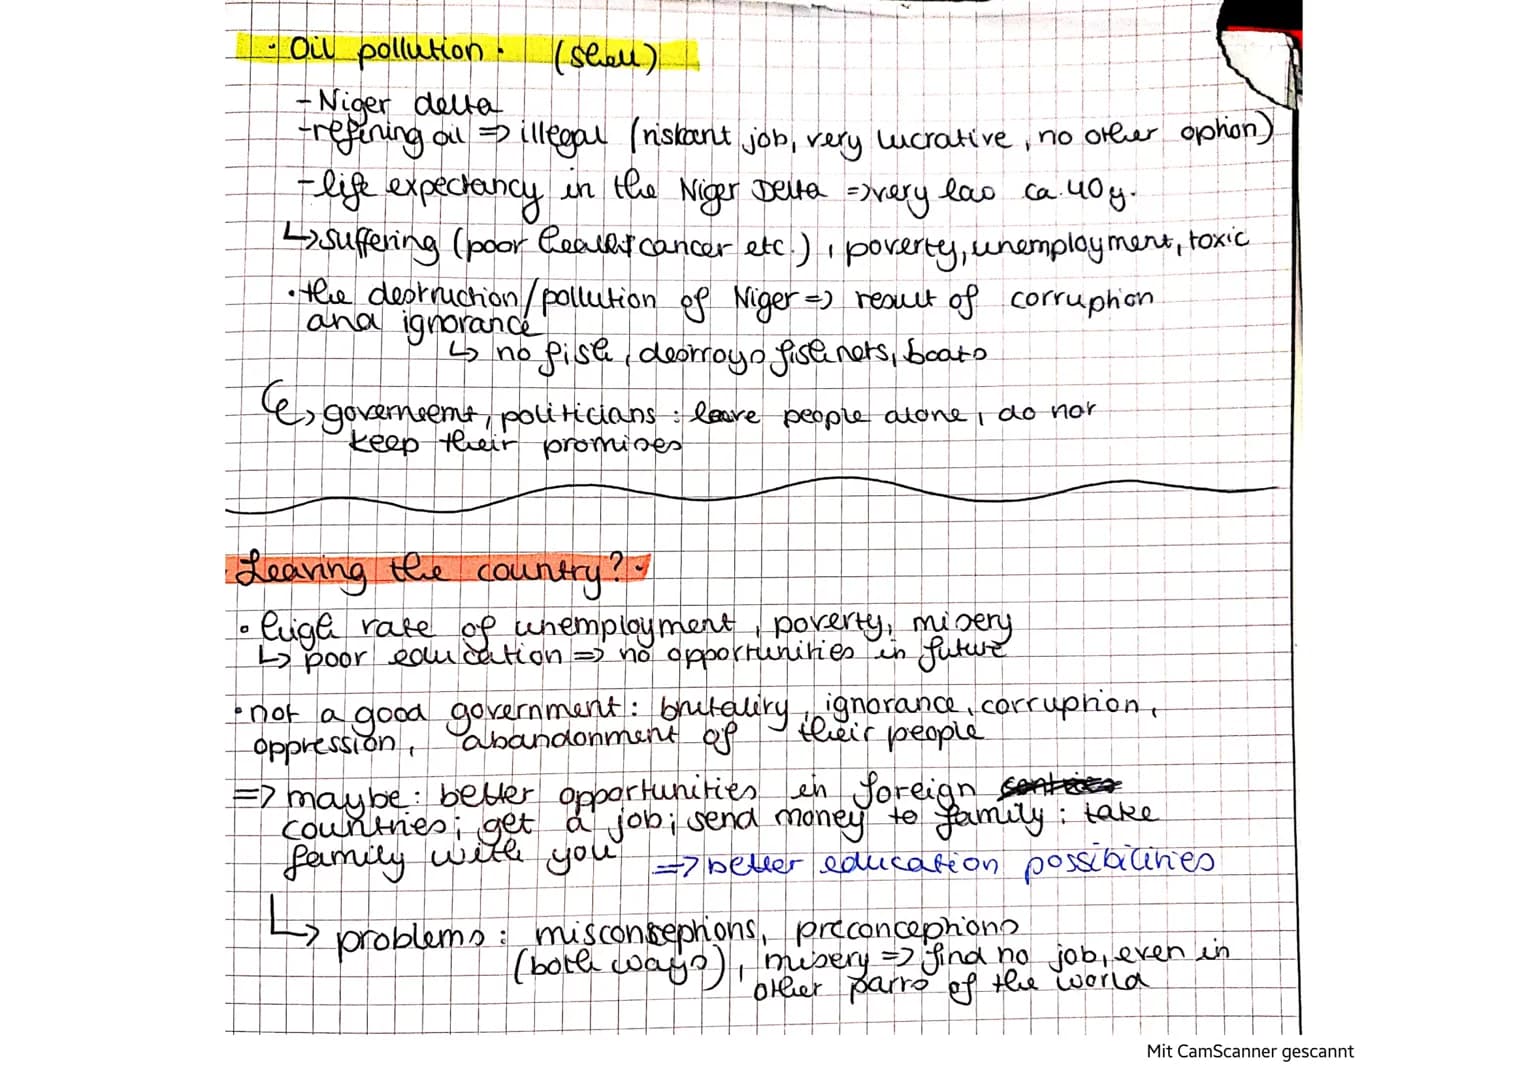 · Oil pollution · (Shell)
- Niger delta
- refining oil => illegal (riskant job, very lucrative, no other option)
- life expectancy in the Niger Delta => very low ca. 40 y.
↳ suffering (poor health cancer etc.), poverty, unemployment, toxic
· the destruction/pollution of Niger => result of corruption
and ignorance
↳ no fish, destroys fishnets, boats
↳ government, politicians: leave people alone, do not
keep their promises
Leaving the country? ·
· high rate of unemployment, poverty, misery
↳ poor education => no opportunities in future
· not a good government: brutality, ignorance, corruption,
oppression, abandonment of their people
=> maybe: better opportunities in foreign
countries; get a job; send money to family: take
family with you => better education possibilities
↳ problems: misconseptions, preconceptions
(both ways), misery => find no job, even in
other parts of the world
Mit CamScanner gescannt